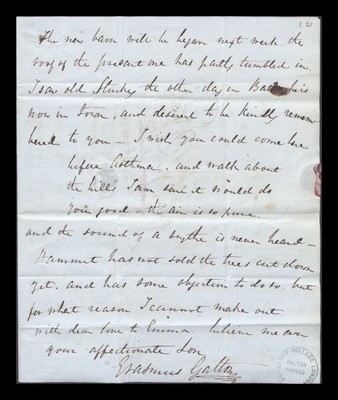 The new barn will be began next week the
roof of the present one has partly tumbled in.
I saw old Stuckey the other day in Bath, he is
now in town, and desired to be kindly remem
bered to you – I wish you could come here
before Asthma, and walk about
the hills. I am sure it would do
you good – the air is so pure
and the sound of a scythe is never heard –
Hammet has not sold the trees cut down
yet, and has some objection to do so, but
for what reason I cannot make out
with dear love to Emma believe me ever
your affectionate Son
Erasmus Galton
UNIVERSITY COLLEGE LONDON
GALTON
PAPERS